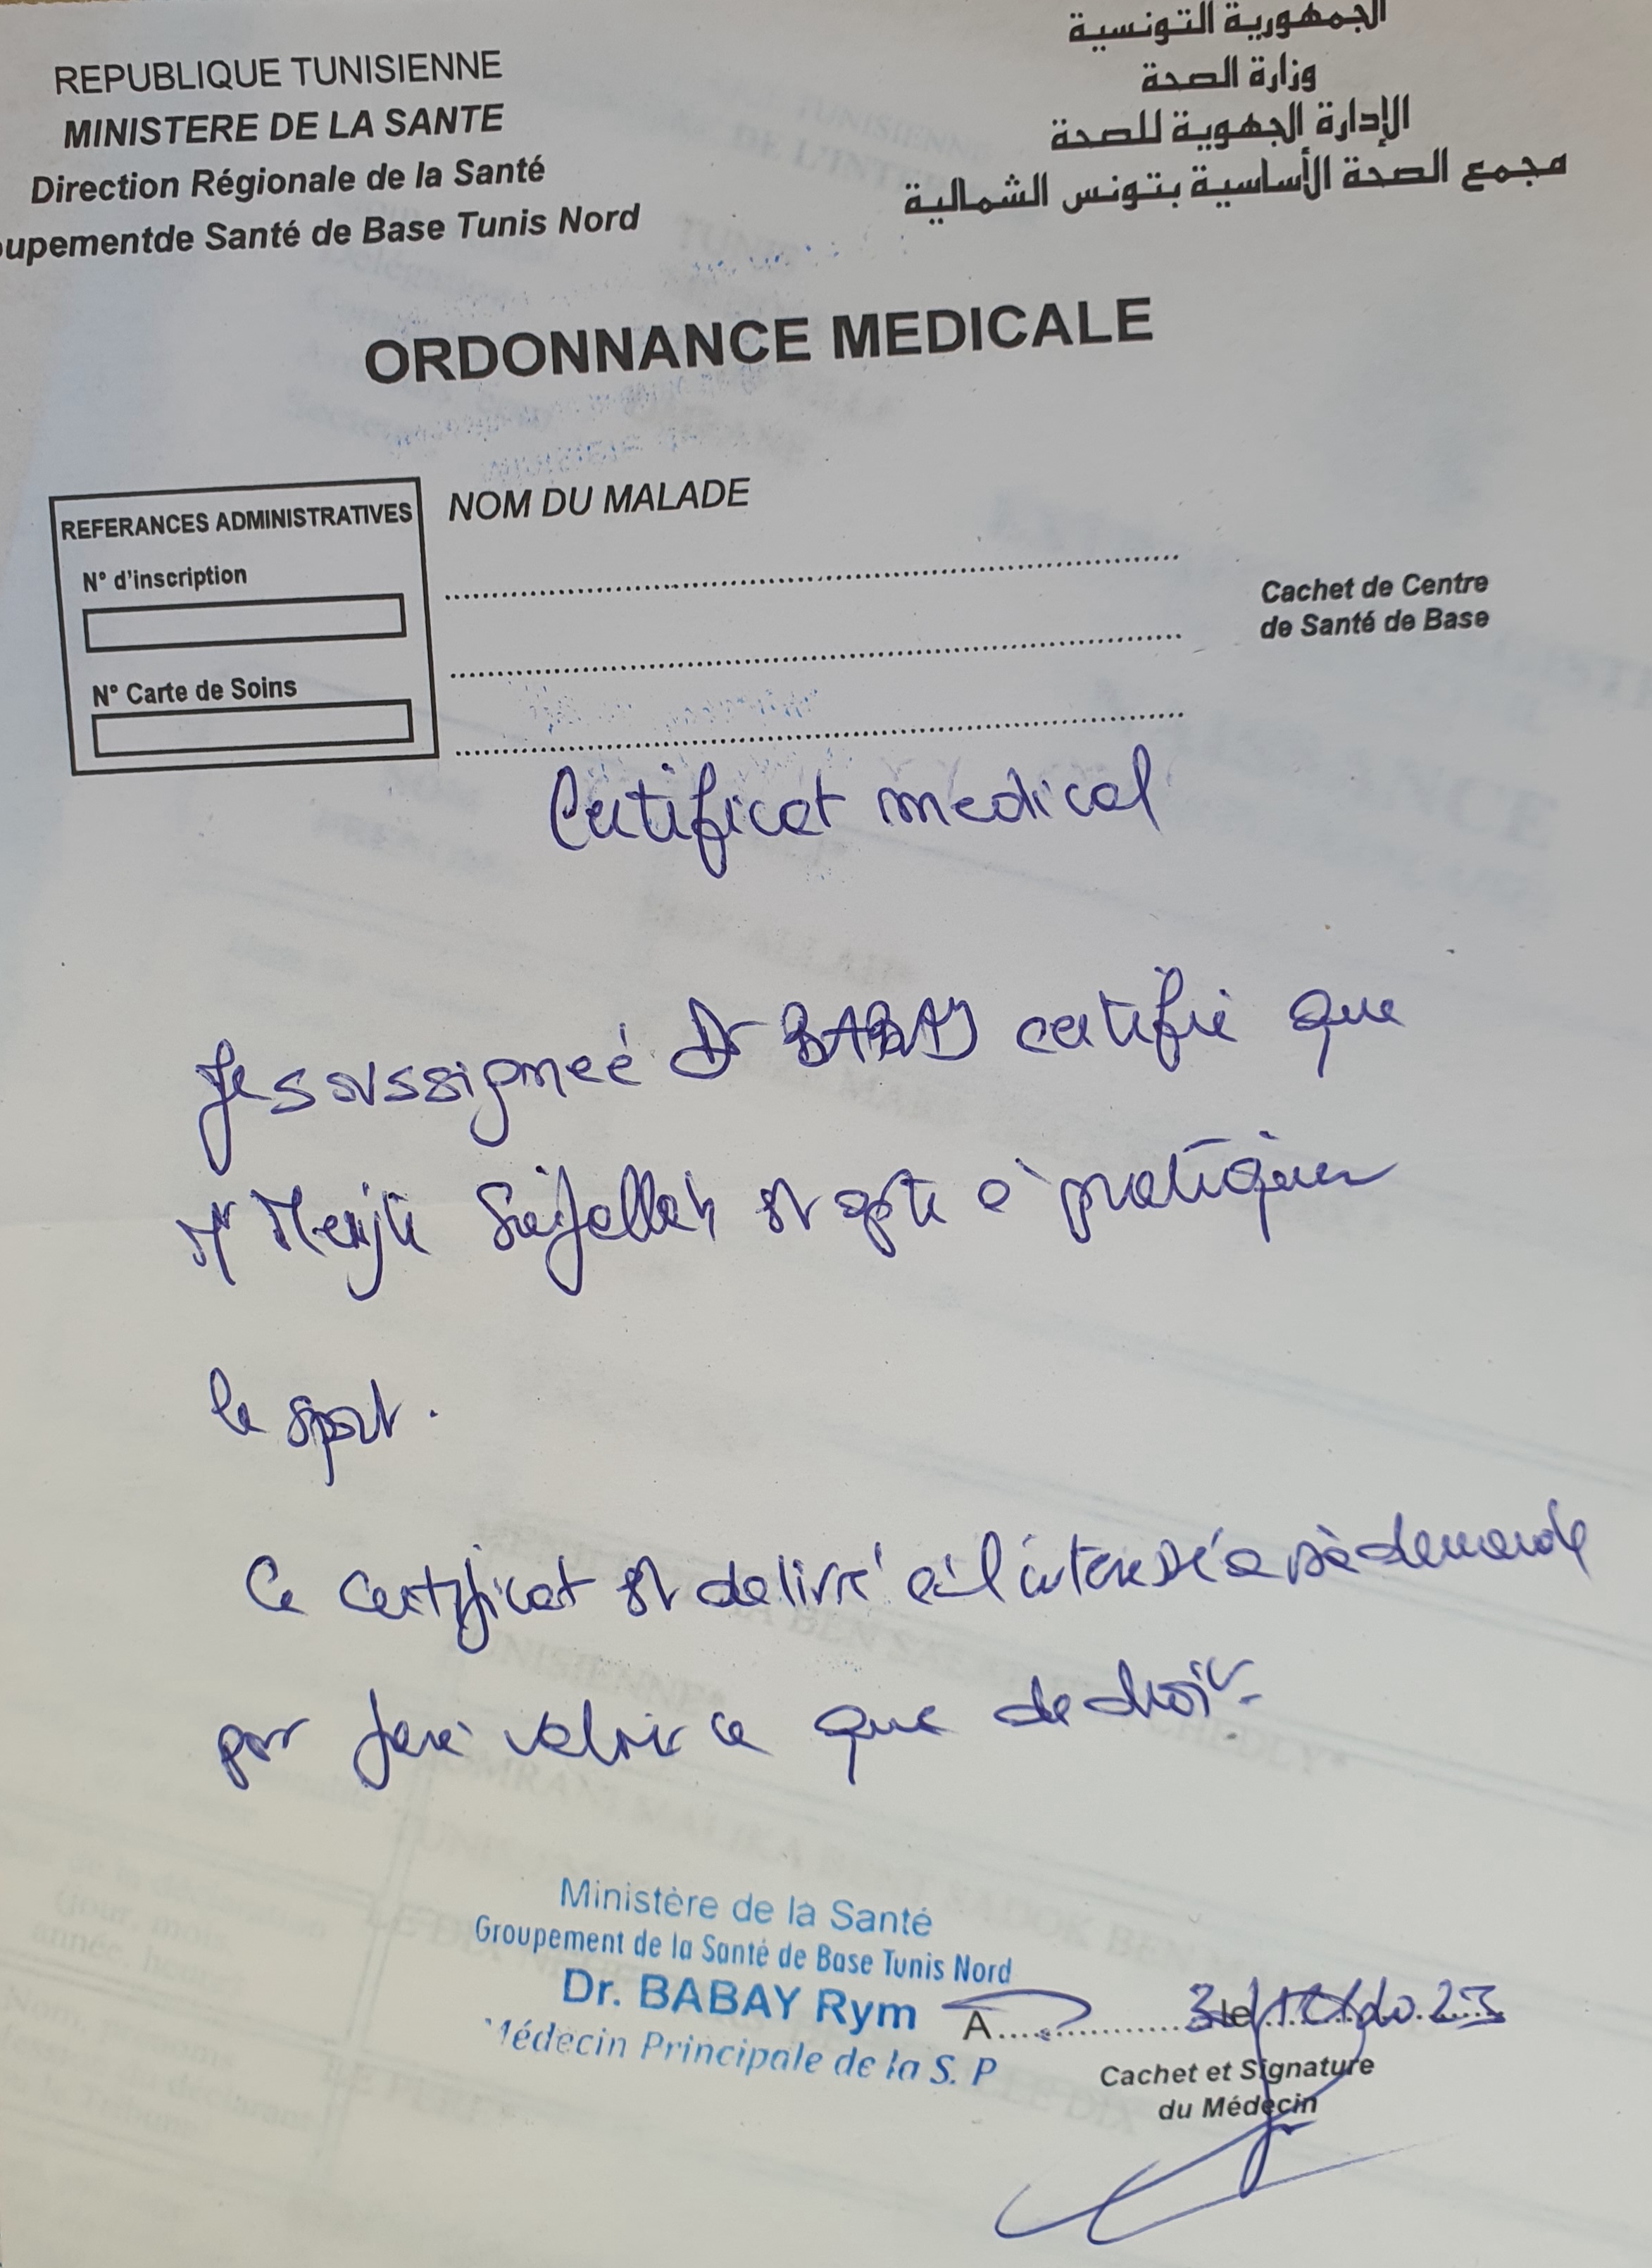 REPUBLIQUE TUNISIENNE
MINISTERE DE LA SANTE
Direction Régionale de la Santé
oupementde Santé de Base Tunis Nord
الجمهورية التونسية
وزارة الصحة
الإدارة الجهوية للصحة
مجمع الصحة الأساسية بتونس الشمالية
ORDONNANCE MEDICALE
REFERANCES ADMINISTRATIVES
N° d'inscription
N° Carte de Soins
NOM DU MALADE
Cachet de Centre
de Santé de Base
Certificat medical
Je soussigneé Dr BABAY certifie que
Mr Seifallah est apte à pratiquer
le sport.
Ce certificat est delivré à l'interessé a sa demande
pour faire valoir ce que de droit
Ministère de la Santé
Groupement de la Santé de Base Tunis Nord
Dr. BABAY Rym
Médecin Principale de la S. P
A le 2023
Cachet et Signature
du Médecin